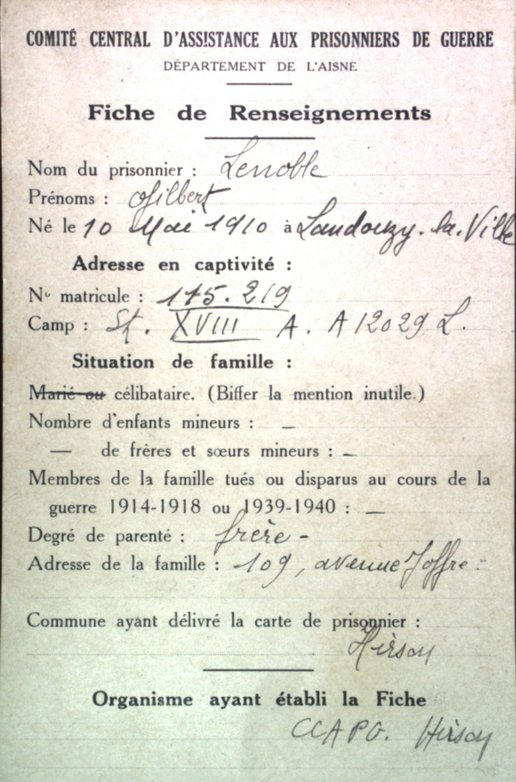 COMITÉ CENTRAL D'ASSISTANCE AUX PRISONNIERS DE GUERRE
DÉPARTEMENT DE L'AISNE
Fiche de Renseignements
Nom du prisonnier : Lenoble
Prénoms : Gilbert
Né le 10 Mai 1910 à Landouzy-la-Ville
Adresse en captivité :
No matricule : 175.219
Camp : St. XVIII A. A 12029 L.
Situation de famille :
Marié ou célibataire. (Biffer la mention inutile.)
Nombre d'enfants mineurs : —
— de frères et sœurs mineurs : —
Membres de la famille tués ou disparus au cours de la
guerre 1914-1918 ou 1939-1940 : —
Degré de parenté : frère -
Adresse de la famille : 109, avenue Joffre -
Commune ayant délivré la carte de prisonnier :
Hirson
Organisme ayant établi la Fiche
CCAPG. Hirson